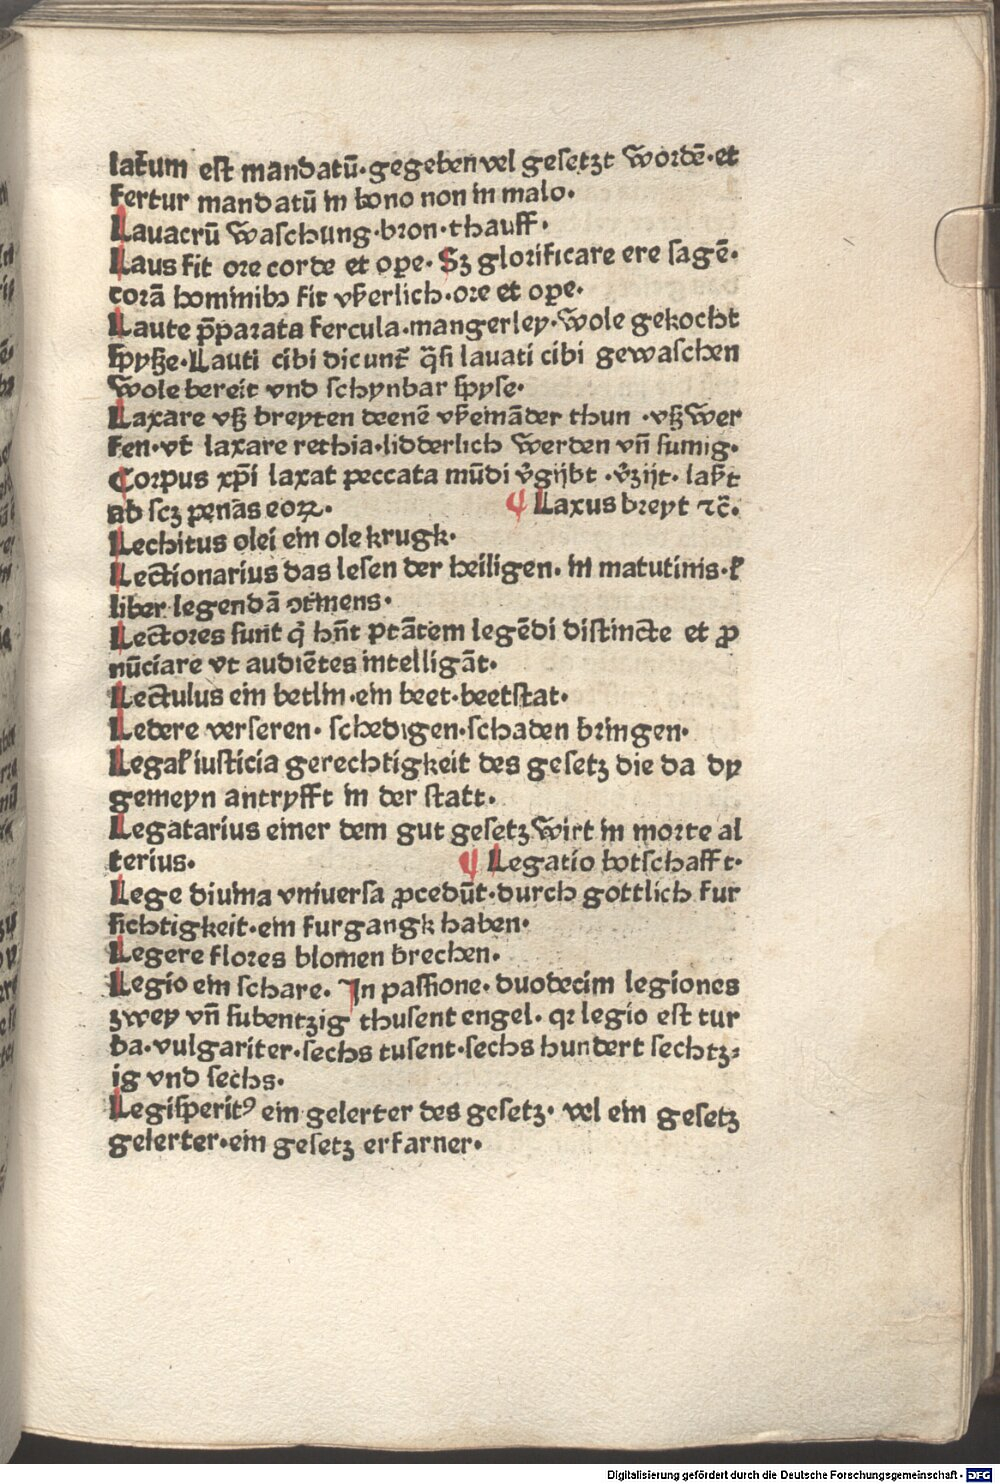 latum est mandatū·gegeben vel gesetzt wordē·et
fertur mandatū in bono non in malo·
Lavacrū waschung·bron·thauff·
Laus fit ore corde et oꝑe·Sꝫ glorificare ere sagē·
corā hominibꝫ fit vßerlich·ore et oꝑe·
Laute p̄parata fercula·mangerley·wole gekocht
spyße·Lauti cibi dicunt̄ q̄si lauati cibi gewaschen
wole bereit vnd schynbar spyse·
Laxare vß breyten deenē vßeināder thun ·vß wer
fen·vt laxare rethia·lidderlich werden vn̄ sumig·
Corpus xp̄i laxat peccata mūdi v̄gijbt ·v̄zijt·
ab scꝫ penas eoꝝ· ¶ Laxus breyt ⁊c̄·
Lechitus olei ein ole krugk·
Lectionarius das lesen der heiligen·in matutinis·
liber legendā
Lectores sunt q̇ hn̄t ptātem legēdi distincte et ꝓ
nūciare vt audiētes intelligāt·
Lectulus ein betlin·ein beet·beetstat·
Ledere verseren·schedigen·schaden bringen·
Legal iusticia gerechtigkeit des gesetz die da dy
gemeyn antryfft in der statt·
Legatarius einer dem gut gesetz wirt in morte al
terius· ¶ Legatio botschafft·
Lege diuina vniuersa ꝓcedūt·durch gottlich fur
sichtigkeit·ein furgangk haben·
Legere flores blomen brechen·
Legio ein schare·In passione·duodecim legiones
zwey vn̄ subentzig thusent engel·qꝛ legio est tur
ba·vulgariter·sechs tusent·sechs hundert sechtz⸗
ig vnd sechs·
Legisperitꝰ ein gelerter des gesetz·vel ein gesetz
gelerter·ein gesetz erfarner·
Digitalisierung gefördert durch die Deutsche Forschungsgemeinschaft - DFG